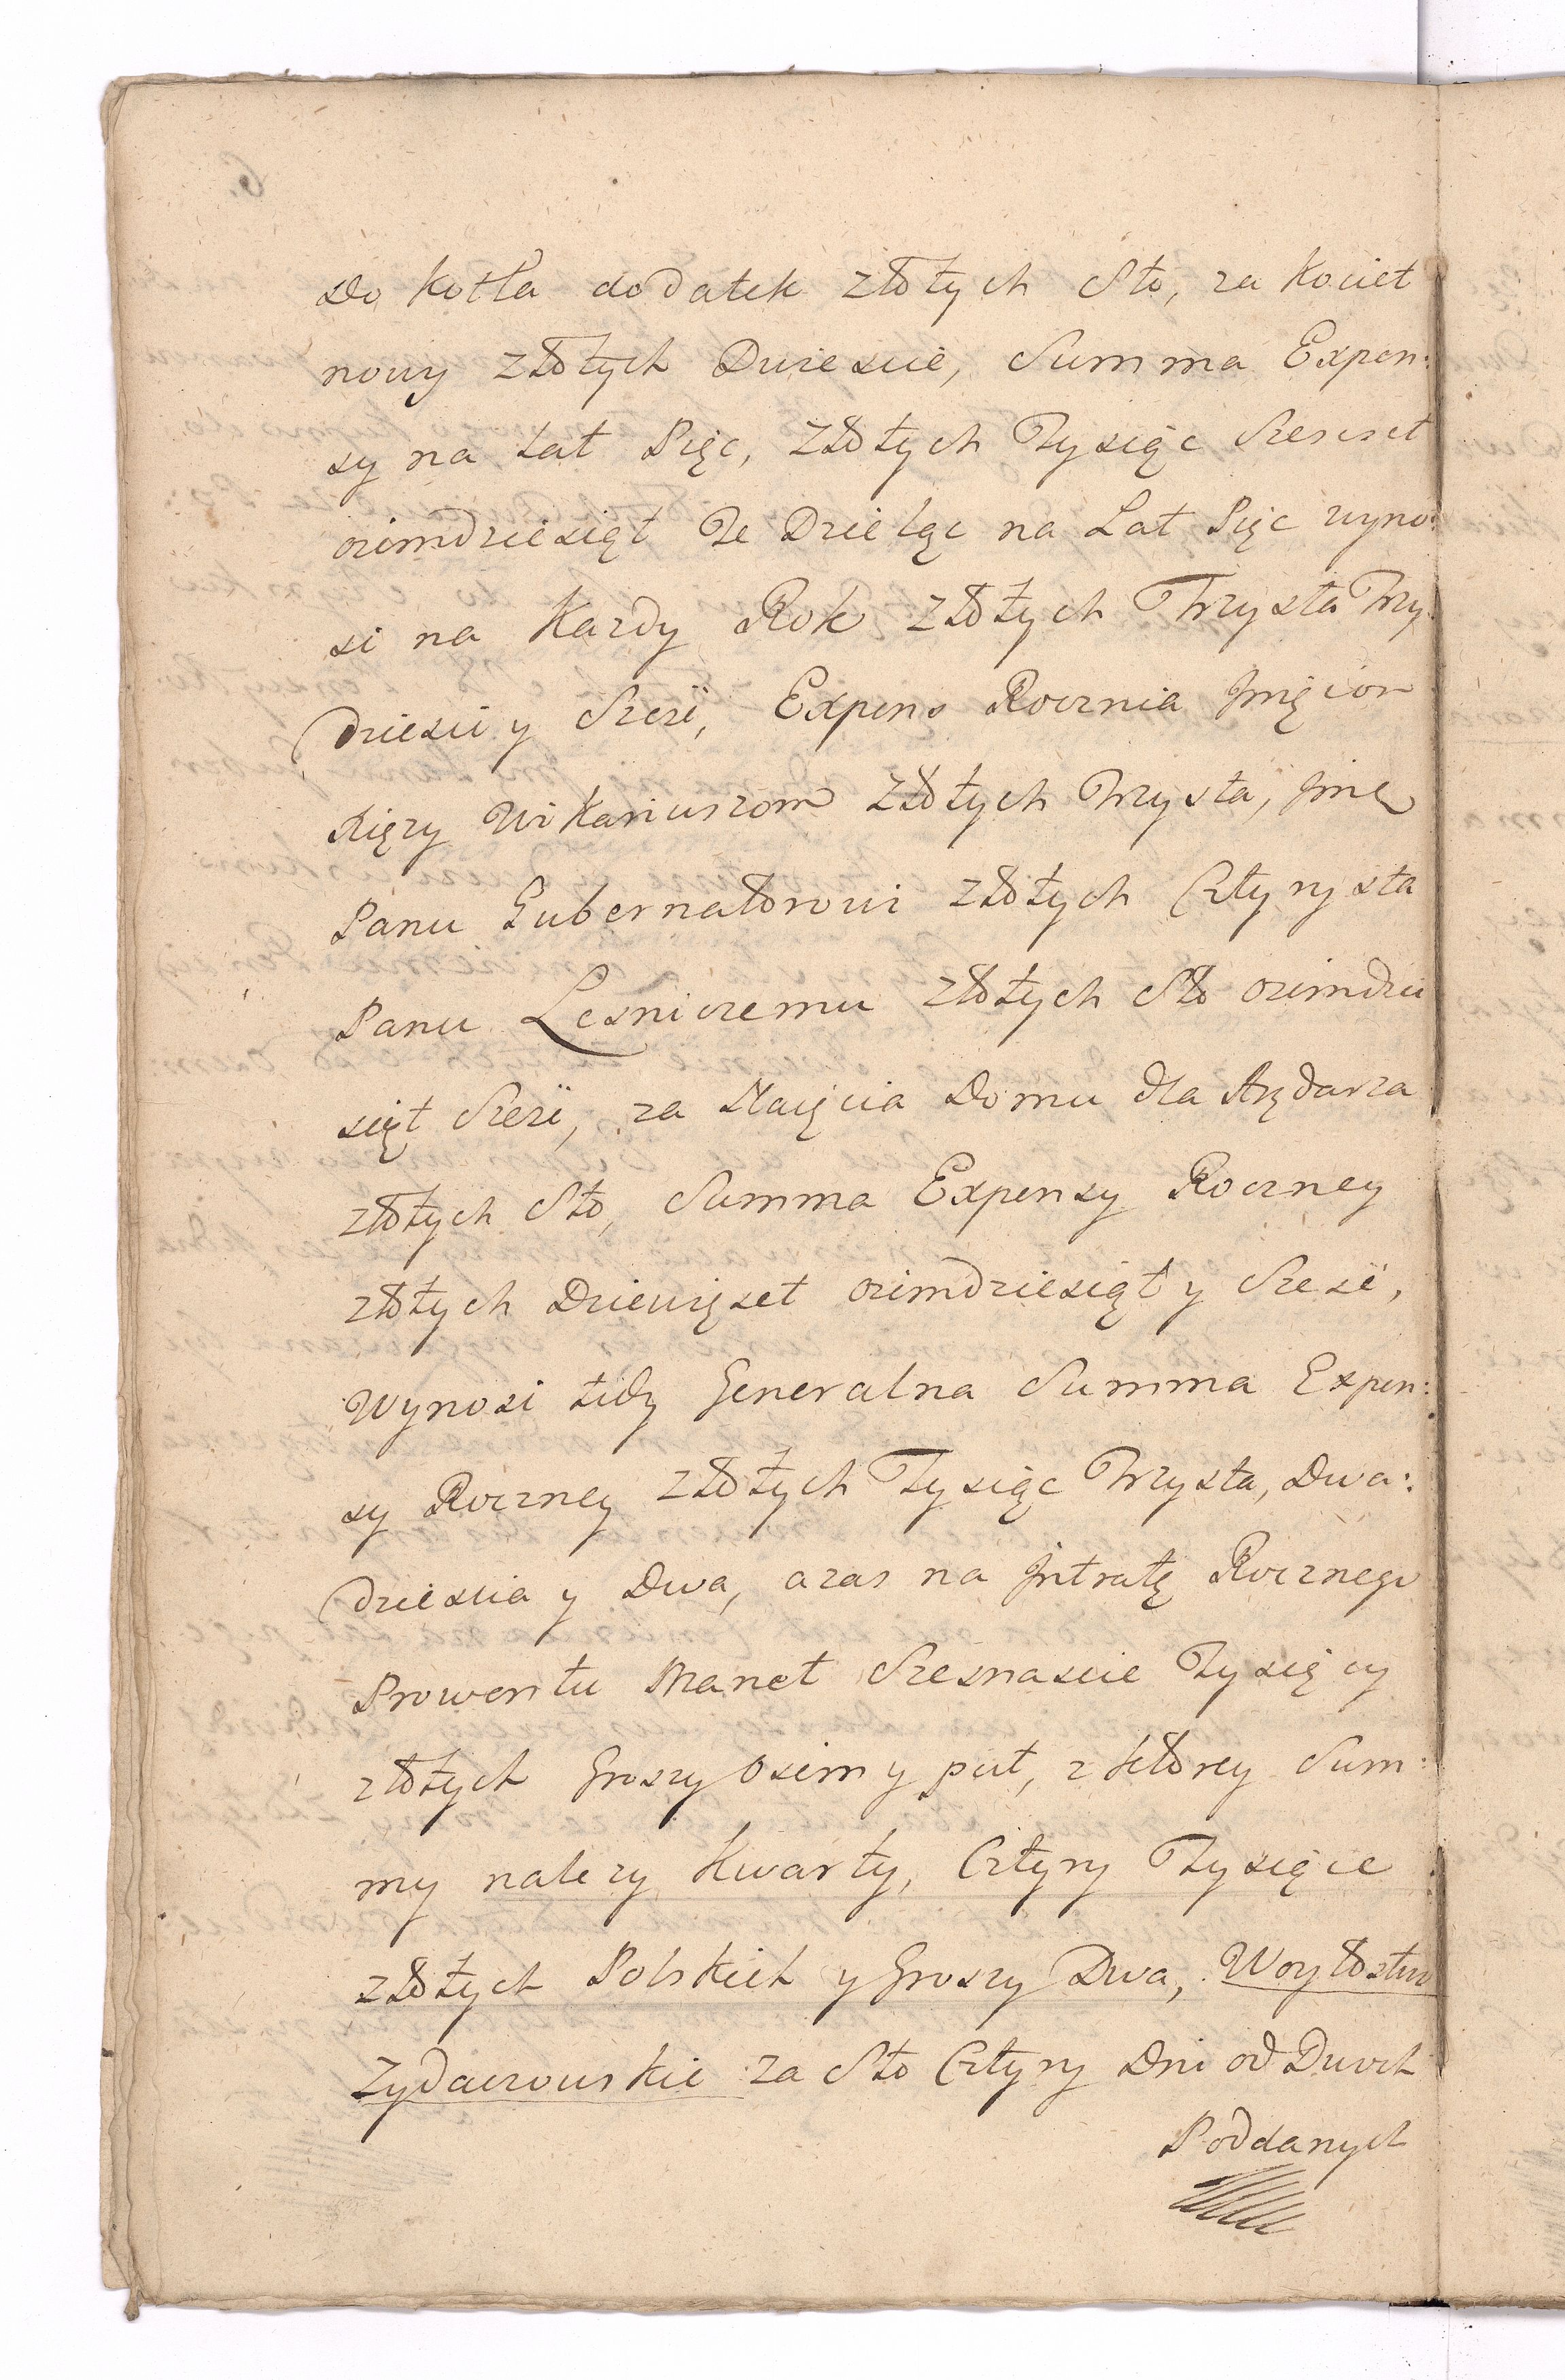 do kotła dodatek złotych Sto, za kocieł
nowy złotych Dwiescie, Summa Expen:
sy na Lat Pięc, złotych Tysiąc Szescset
ozimdziesiąt Te Dzieląc na Lat Pięc wyno:
si na Kazdy Rok złotych Trzysta Trzy:
dziesci y Szesć, Expens Roczna Jmęciom
Xięzy Wikariuszom złotych Trzysta, Jmę
Panu Gubernatorowi złotych Cztyrysta
Panu Lesniczemu złotych Sto ozimdzie
sięt Szesć, za Naięcia Domu dla Arędarza
złotych Sto, Summa Expensy Roczney
złotych Dziewięset ozimdziesiąt y Szesć,
Wynosi tedy Generalna Summa Expen:
sy Roczney złotych Tysiąc Trzysta, Dwa:
dziescia y Dwa, azas na Jntratę Rocznego
Prowentu Manet Szesnascie Tysięcy
złotych Groszy Osim y puł, z ktorey Sum:
my nalezy Kwarty, Cztyry Tysięce
złotych Polskich y Groszy Dwa, Woytostwo
Zydaczowskie za Sto Cztyry Dni od Dwoch
Poddanych